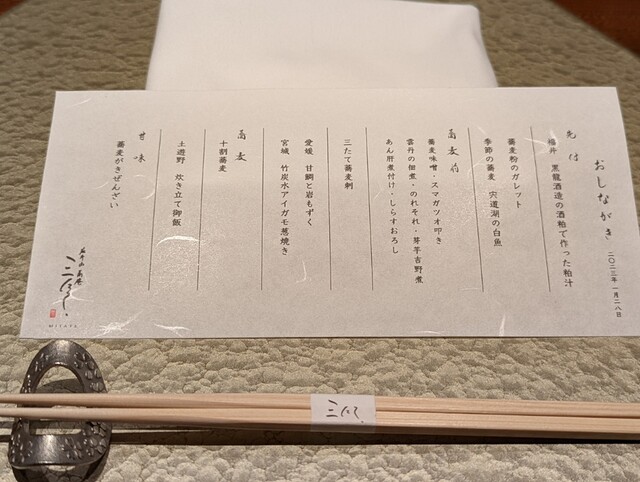 おしながき
二〇二三年一月二八日
先付
福井　黒龍酒造の酒粕で作った粕汁
蕎麦粉のガレット
季節の蕎麦　宍道湖の白魚
蕎麦前
蕎麦味噌・スマガツオ叩き
雲丹の佃煮・のれそれ・芽芋吉野煮
あん肝煮付け・しらすおろし
三たて蕎麦刺
愛媛　甘鯛と岩もずく
宮城　竹炭水アイガモ葱焼き
蕎麦
十割蕎麦
土遊野　炊き立て御飯
甘味
蕎麦がきぜんざい
三たて
MITATE
三たて